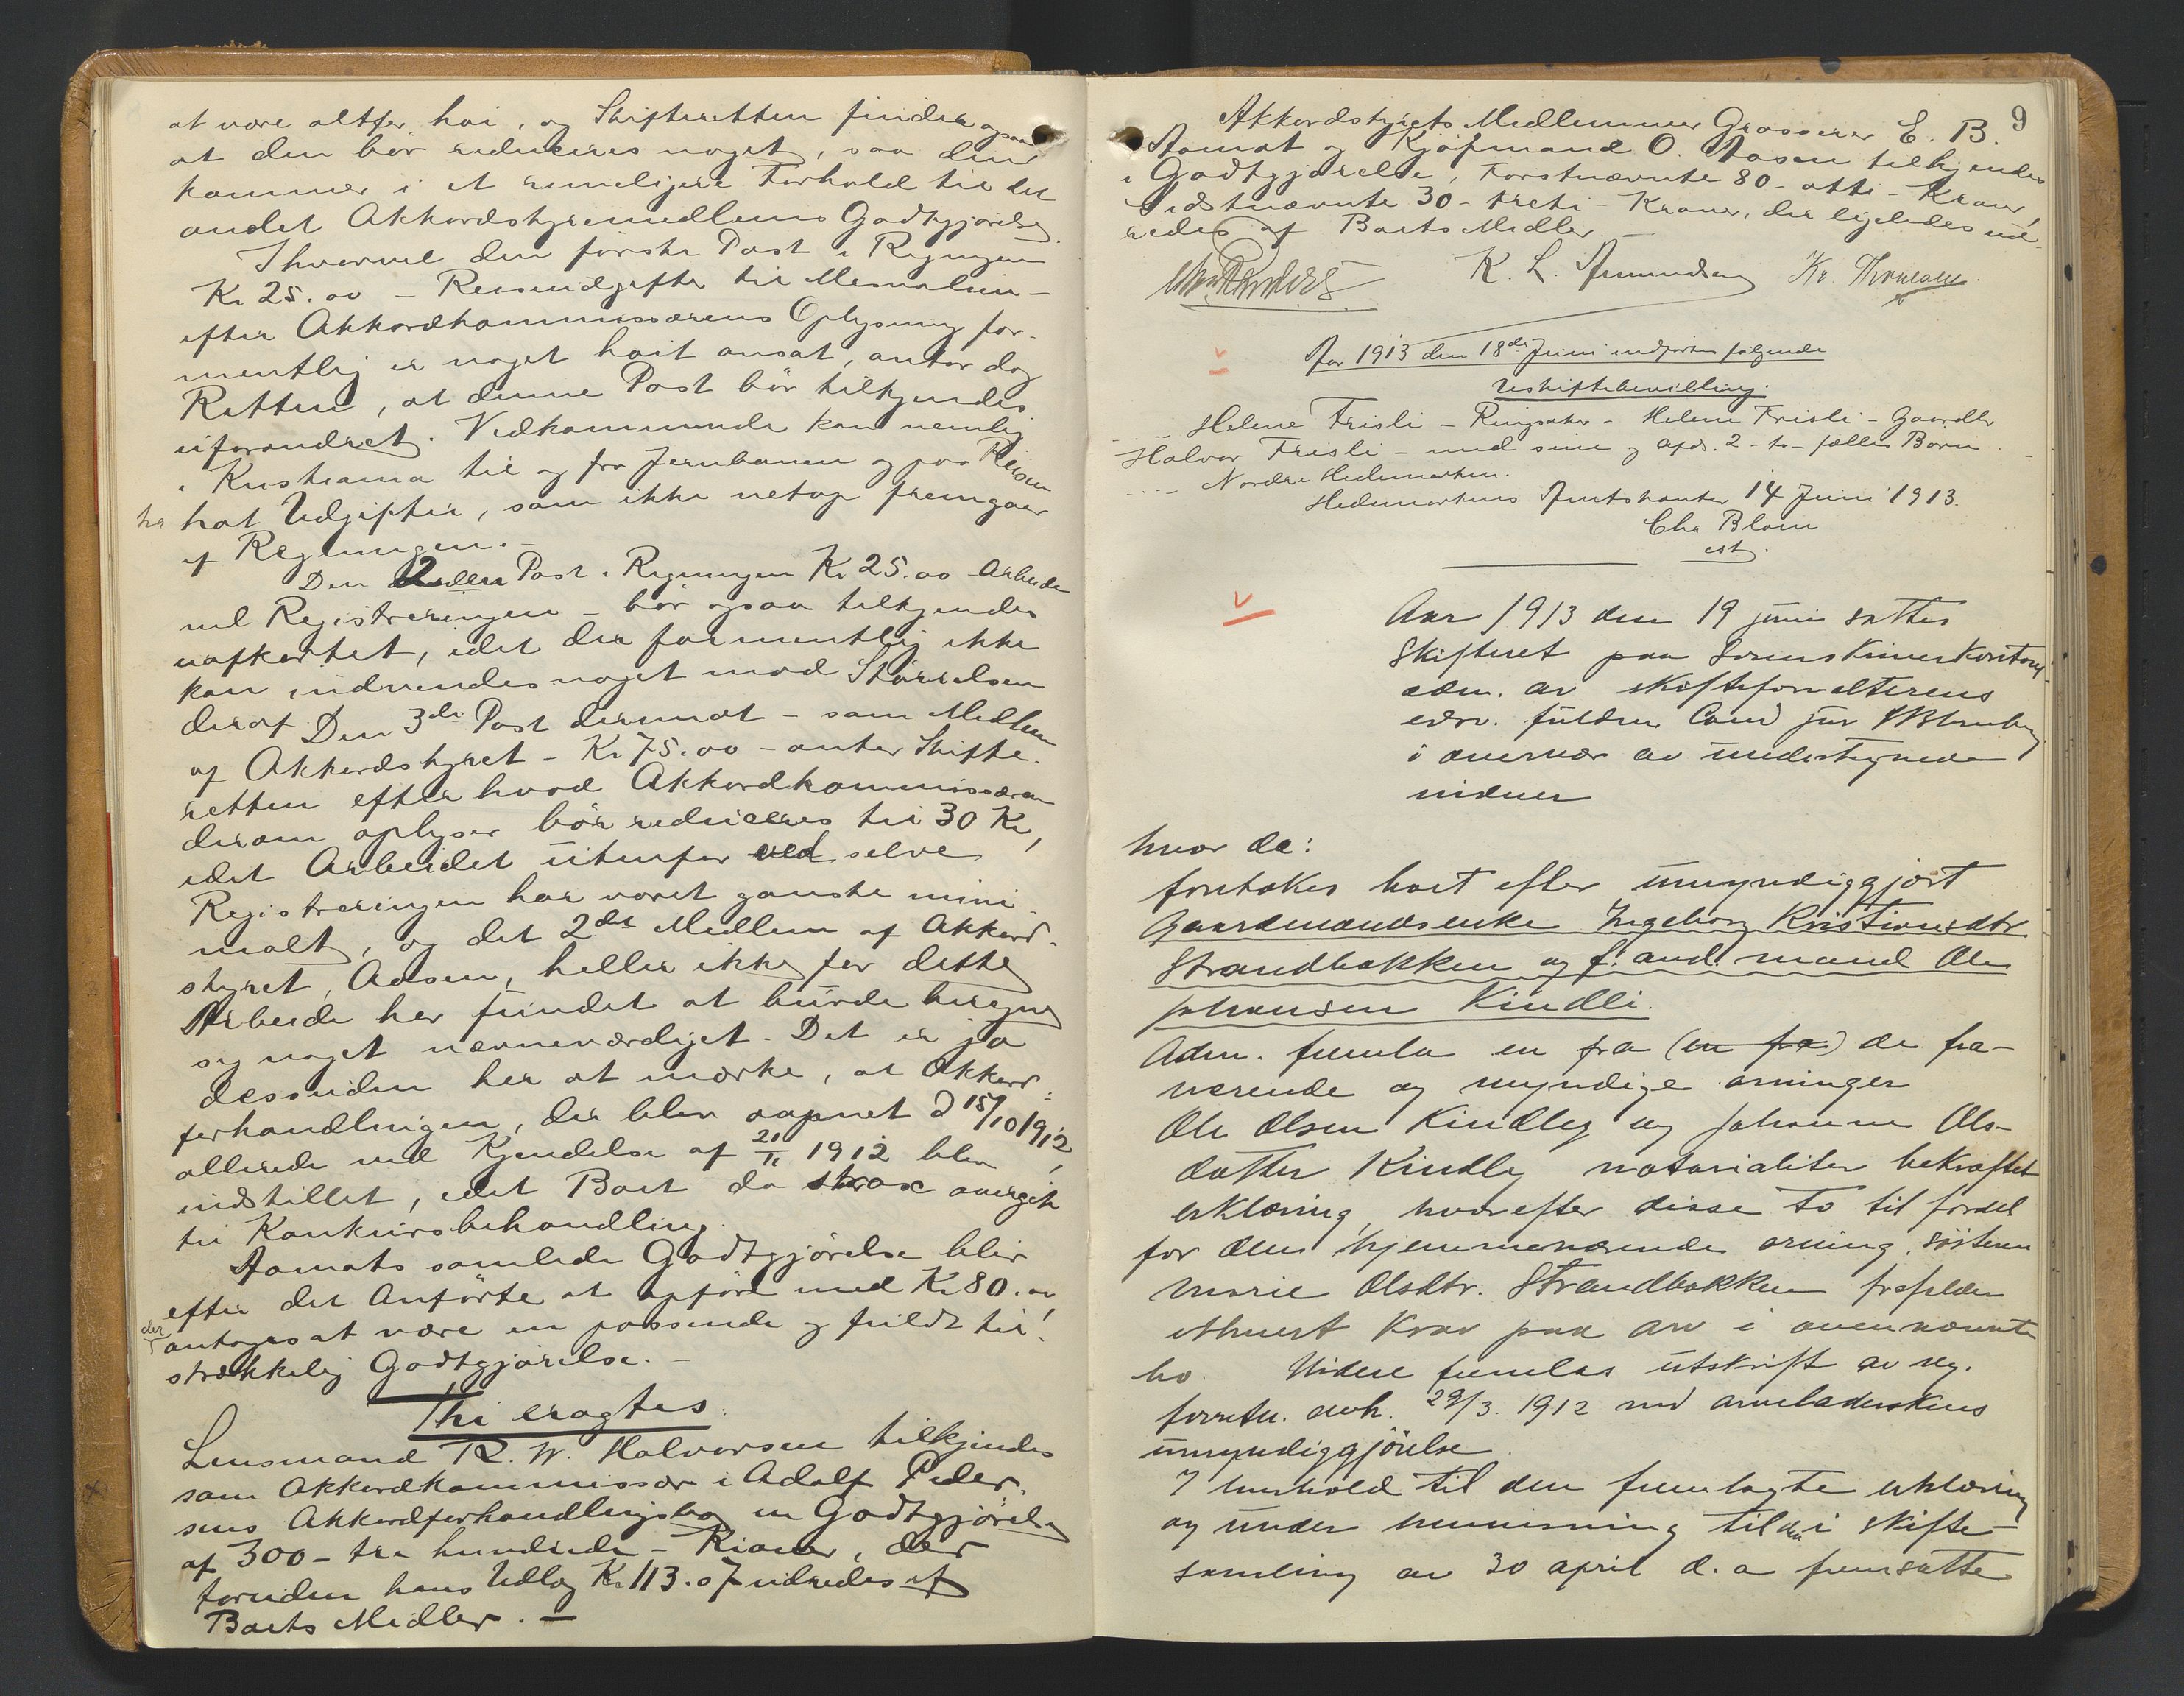 at være altfor høi, og Skifteretten finder ogsaa
at den bør reduceres noget, saa den
kommer i et rimeligere Forhold til det
andet Akkordstyremedlems Godtgjørelse.
Ihvorvel den første Post i Regningen
Kr 25.00 – Reiseudgifter til Mesnalien –
efter Akkordkommissærens Oplysning for-
mentlig er noget høit ansat, antar dog
Retten, at denne Post bør tilkjendes
uforandret. Vedkommende kan nemlig
i Kristiania til og fra Jernbanen og paa Reisen
ha hat Udgifter, som ikke netop fremgaar
af Regningen. –
Den 2den Post i Regningen Kr 25.00 Arbeide
ved Registreringen – bør ogsaa tilkjendes
uafkortet, idet der formentlig ikke
kan indvendes noget mod Størrelsen
deraf. Den 3die Post derimot – som Medlem
af Akkordstyret – Kr 75.00 – antar Skifte-
retten efter hvad Akkordkommissæren
derom oplyser bør reduceres til 30 Kr,
idet Arbeidet utenfor selve
Registreringen har været ganske mini-
malt, og det 2det Medlem af Akkord-
styret, Aasen, heller ikke for dette
Arbeide har fundet at burde beregne
sig noget nævneværdiget. Det er jo
dessuden her at mærke, at Akkord-
forhandlingen, der blev aapnet d 15/10 1912,
allerede ved Kjendelse af 21/11 1912 blev
indstillet, idet Boet da strax overgik
til Konkursbehandling.
Aamots samlede Godtgjørelse blir
efter det Anførte at opføre med Kr 80.00,
der antages at være en passende og fuldt til-
strækkelig Godtgjørelse. –
Thi eragtes:
Lensmand R. W. Halvorsen tilkjendes
som Akkordkommissær i Adolf Peder-
sens Akkordforhandlingsbo en Godtgjørelse
af 300 – tre hundrede – Kroner, der
foruden hans Udlæg Kr 113.07 udredes af
Boets Midler. –
9
Akkordstyrets Medlemmer Grosserer E. B.
Aamot og Kjøpmand O. Aasen tilkjendes
i Godtgjørelse, Førstnævnte 80 – otti – Kroner,
Sidstnævnte 30 – treti – Kroner, der ligeledes ud-
redes af Boets Midler. –
K. L. Amundsen Kr. Thronsen.
Aar 1913 den 18de Juni indførtes følgende
Uskiftebevilling:
Helene Frisli – Ringsaker – Helene Frisli – Gaardbr
Halvor Frisli – med sine og afds. 2 – to – fælles Børn.
Nordre Hedemarken.
Hedemarkens Amtskontor 14 Juni 1913.
Chr Blom
cst.
Aar 1913 den 19 juni sattes
Skifteret paa Sorenskriverkontoret
adm. av skifteforvalterens
edsv. fuldm. Cand jur
i overvær av undertegnede
vidner
hvor da:
foretokes boet efter umyndiggjort
gaardmandsenke Ingeborg Kristiansdtr
Strandbakken og f. avd. mand Ole
Johansen Kindli.
Adm. fremla en fra (en fra) de fra-
værende og myndige arvinger
Ole Olsen Kindly og Johanne Ols-
datter Kindly notorialiter bekræftet
erklæring, hvorefter disse to til fordel
for den hjemmeværende arving, søsteren
Marie Olsdtr. Strandbakken frafalder
ethvert krav paa arv i ovennævnte
bo. Videre fremlas utskrift av reg.
forretn. avh. 29/3. 1912 ved arveladerskens
umyndiggjörelse.
I henhold til den fremlagte erklæring
og under henvisning til den i skifte-
samling av 30 april d. a fremsatte